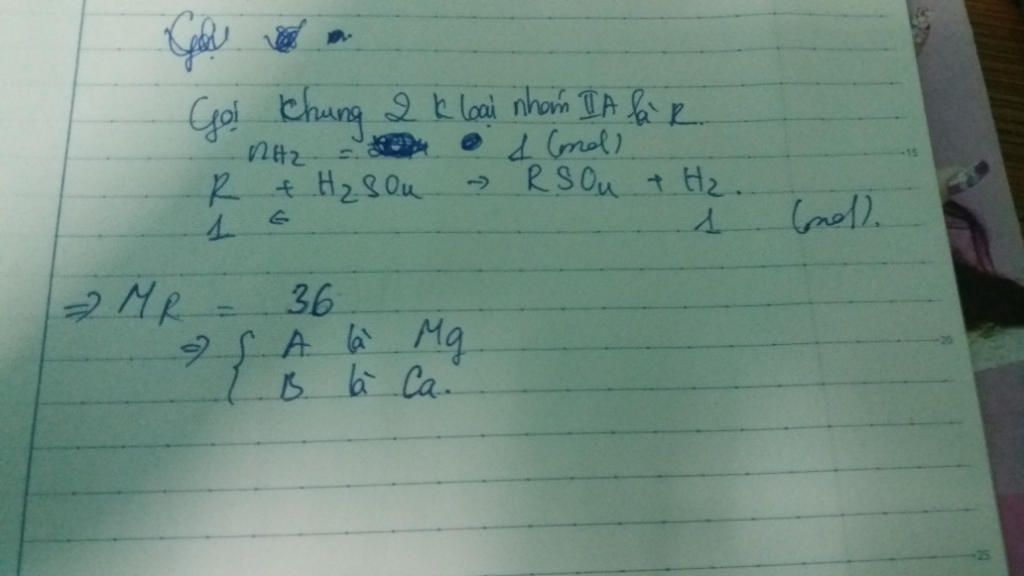 Gọi
Gọi chung 2 k loại nhóm IIA là R.
nH2 = 1 (mol)
R + H2SO4 → RSO4 + H2.
1 ← 1 (mol).
⇒ MR = 36
⇒ { A là Mg
B là Ca.
15
20
25